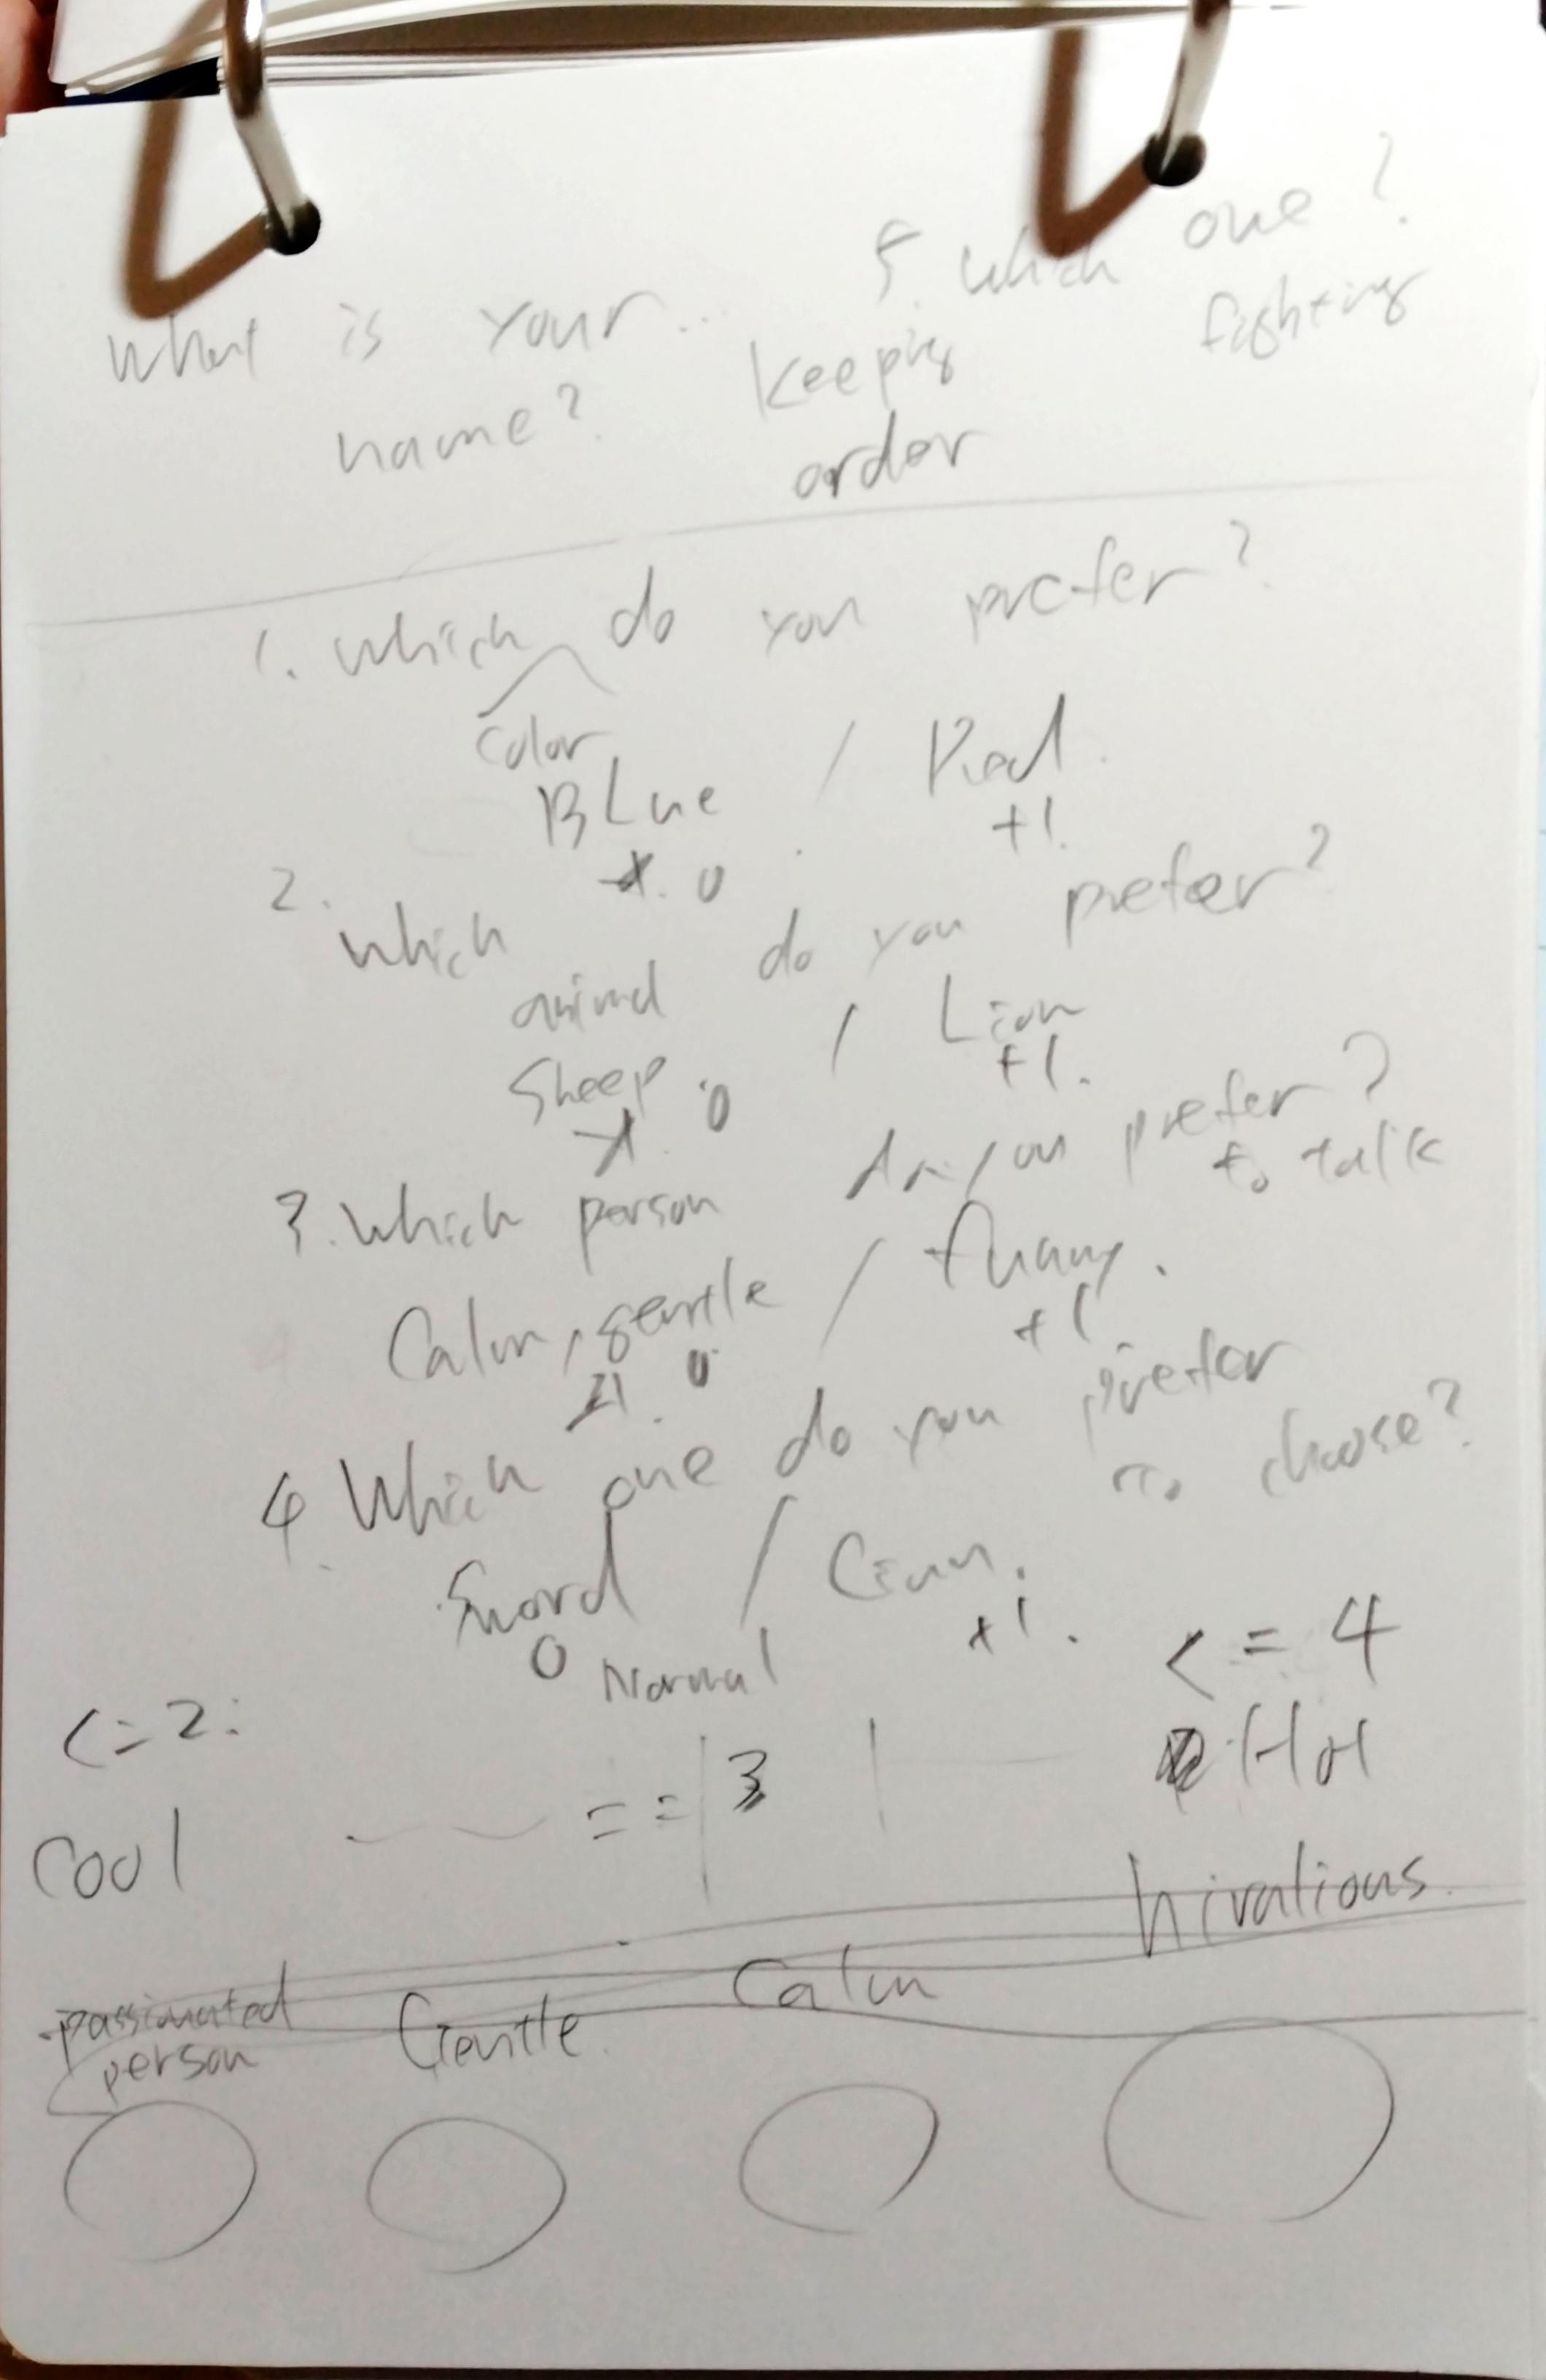 What is your...
name?
5. which one?
keeping fighting
order
1. which do you prefer?
color
BLue / Red.
0 +1.
2. which do you prefer?
animal
Sheep / Lion
0 +1.
3. which person do you prefer?
to talk
Calm, gentle / funny.
0 +1
4. Which one do you prefer
to choose?
Sword / Gun.
0 +1.
Normal
<=2:
== 3
<= 4
Cool
Hot
hivalious.
passionated
person
Gentle.
Calm